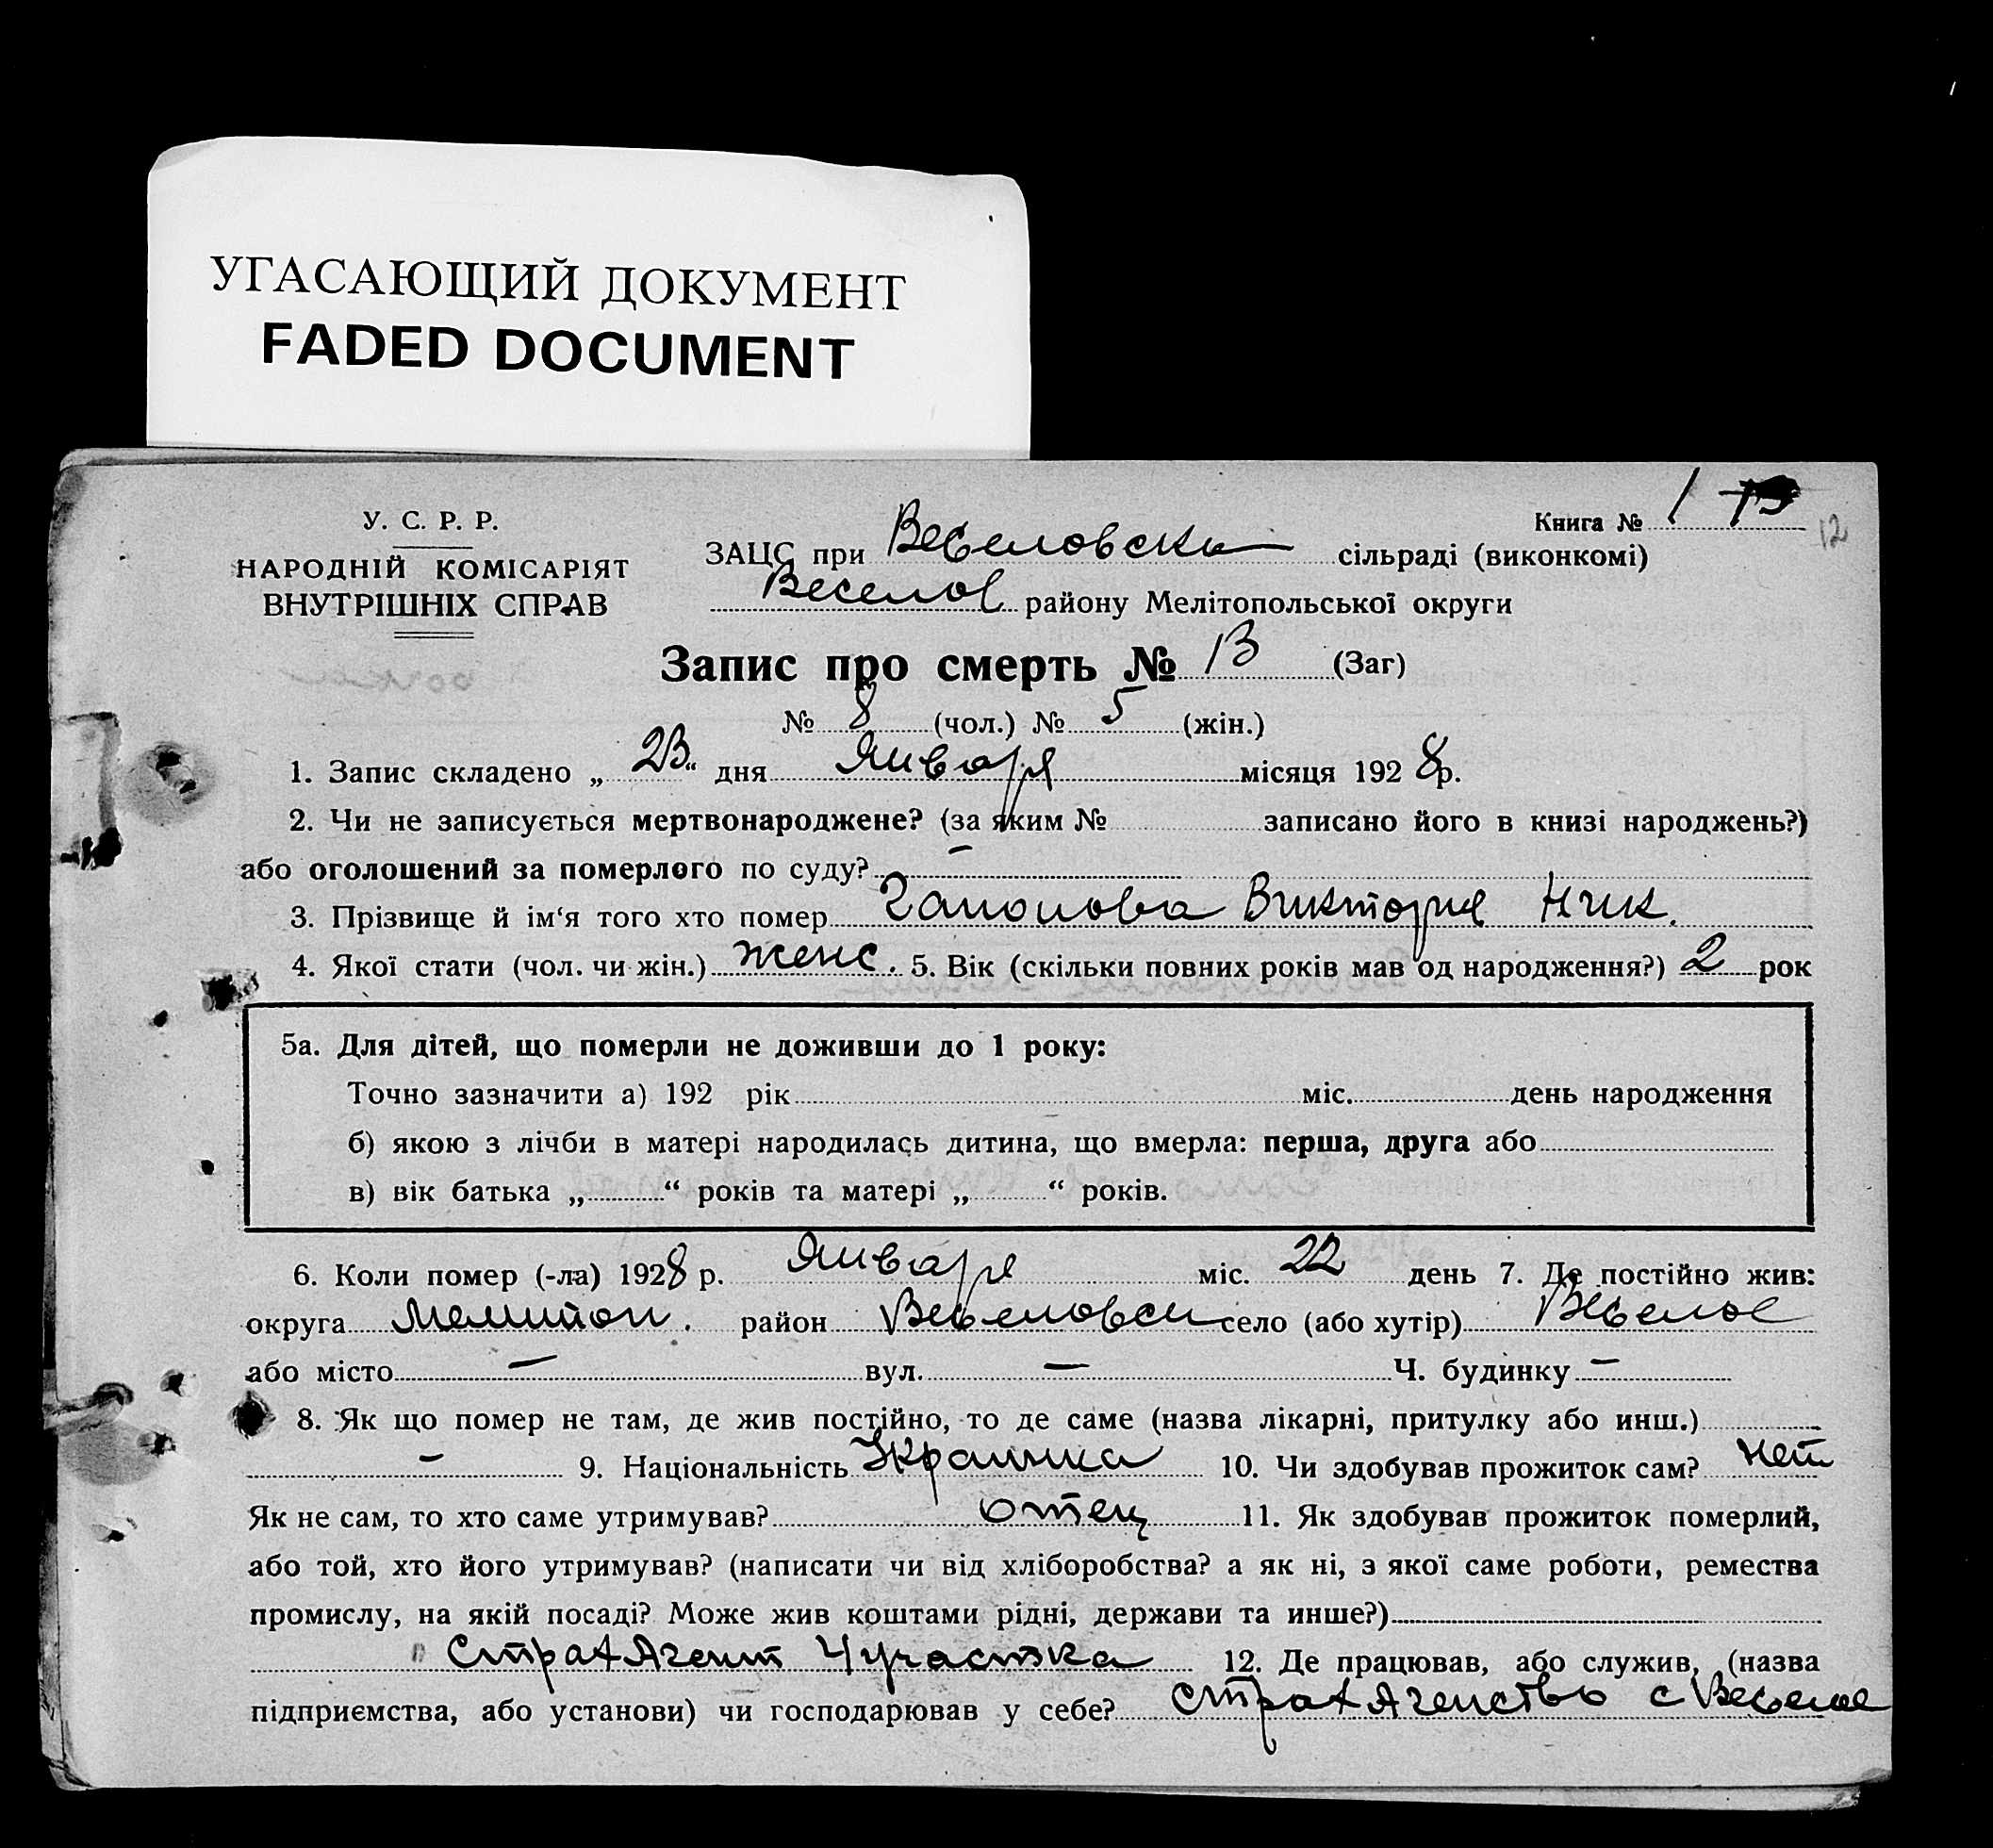 УГАСАЮЩИЙ ДОКУМЕНТ
FADED DOCUMENT
У. С. Р. Р.
НАРОДНІЙ КОМІСАРІЯТ
ВНУТРІШНІХ СПРАВ
Книга № 1
12
ЗАЦС при Веселовски сільраді (виконкомі)
Веселов району Мелітопольської округи
Запис про смерть № 13 (Заг)
№ 8 (чол.) № 5 (жін.)
1. Запис складено „ 23 “ дня Января місяця 1928 р.
2. Чи не записується мертвонароджене? (за яким № записано його в книзі народжень?)
або оголошений за померлого по суду? —
3. Прізвище й ім‘я того хто помер Гапонова Виктория Ник.
4. Якої стати (чол. чи жін.) женс. 5. Вік (скільки повних років мав од народження?) 2 рок
5а. Для дітей, що померли не доживши до 1 року:
Точно зазначити а) 192 рік міс. день народження
б) якою з лічби в матері народилась дитина, що вмерла: перша, друга або
в) вік батька „ “ років та матері „ “ років.
6. Коли помер (-ла) 1928 р. Января міс. 22 день 7. Де постійно жив:
округа Мелитоп. район Веселовск село (або хутір) Веселое
або місто — вул. — Ч. будинку —
8. Як що помер не там, де жив постійно, то де саме (назва лікарні, притулку або инш.)
— 9. Національність Украинка 10. Чи здобував прожиток сам? нет
Як не сам, то хто саме утримував? отец 11. Як здобував прожиток померлий,
або той, хто його утримував? (написати чи від хліборобства? а як ні, з якої саме роботи, ремества
промислу, на якій посаді? Може жив коштами рідні, держави та инше?)
СтрахАгент Участка 12. Де працював, або служив, (назва
підприємства, або установи) чи господарював у себе? СтрахАгенство с Веселое